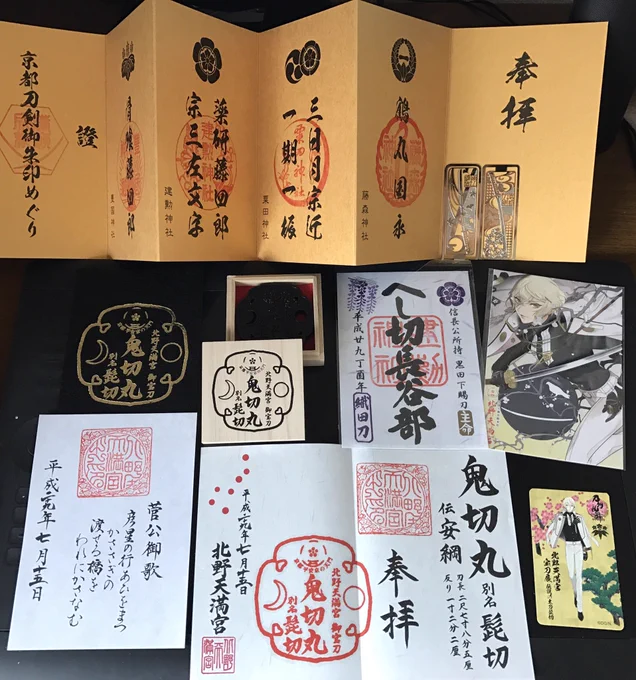 奉拝
鶴丸国永
藤森神社
三日月宗近
一期一振
粟田神社
薬研藤四郎
宗三左文字
建勲神社
藤四郎
豊国神社
證
京都刀剣御朱印めぐり
北野天満宮 御宝刀
鬼切丸
別名 髭切
北野天満宮 御宝刀
鬼切丸
別名 髭切
信長公所持 黒田下賜刀
主命
へし切長谷部
平成廿九丁酉年
織田刀
菅公御歌
彦星の行あひをまつ
かささぎの
渡せる橋を
われにかさなむ
平成二九年 七月十五日
鬼切丸 別名 髭切
伝安綱
刀長 二尺七寸八分五厘
反り 一寸二分二厘
奉拝
北野天満宮 御宝刀
鬼切丸
別名 髭切
平成二九年七月十五日
北野天満宮
北野天満宮
宝刀展